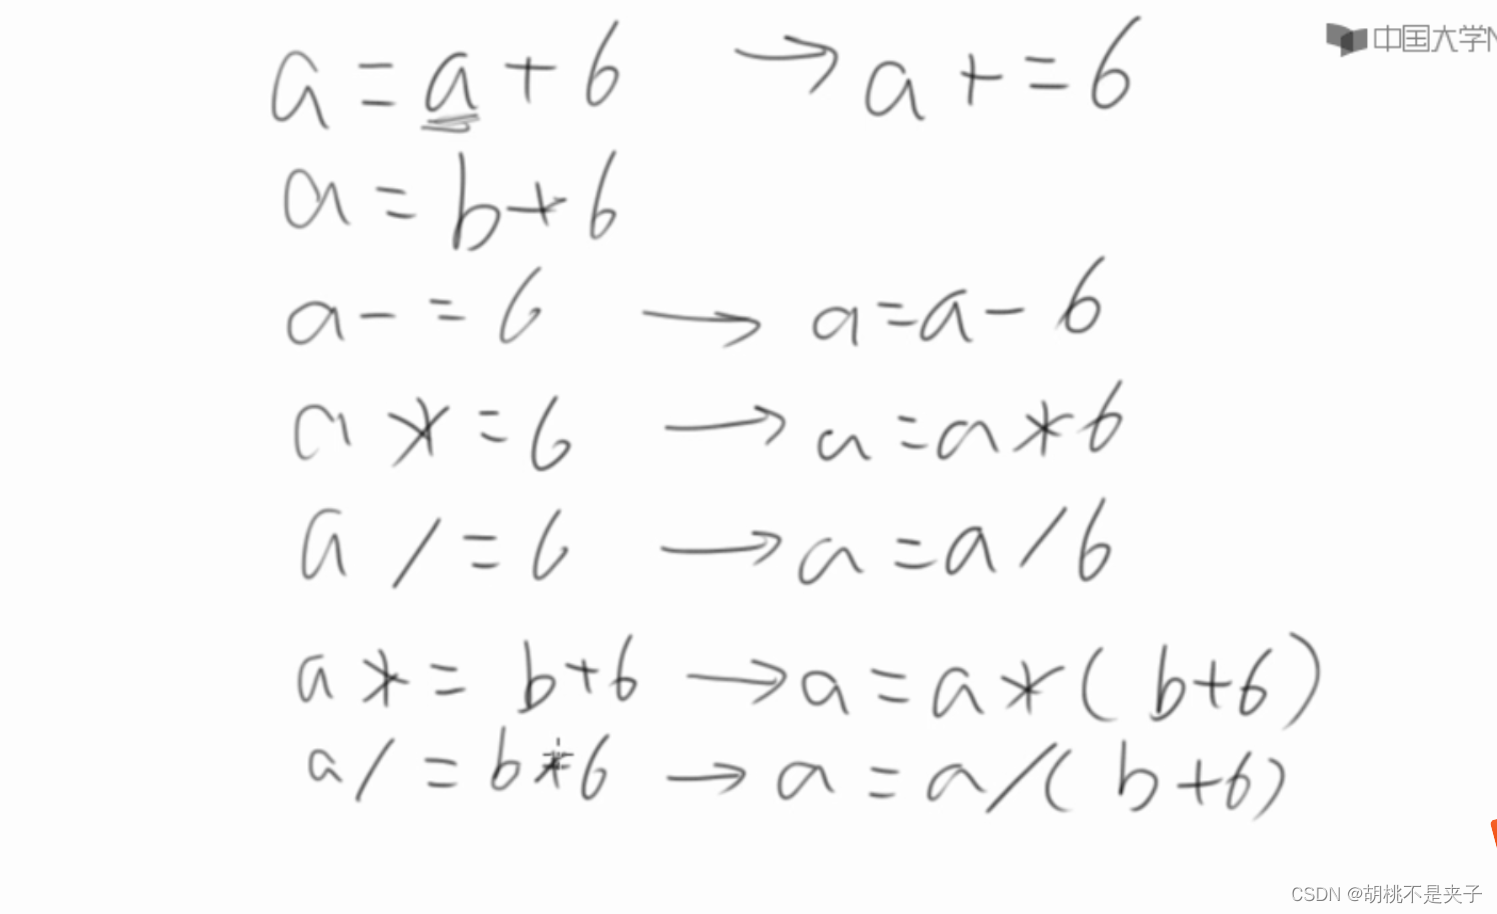 中国大学M
a = a + 6 → a += 6
a = b + 6
a -= 6 → a = a - 6
a *= 6 → a = a * 6
a /= 6 → a = a / 6
a *= b + 6 → a = a * ( b + 6 )
a /= b * 6 → a = a / ( b + 6 )
CSDN @胡桃不是夹子